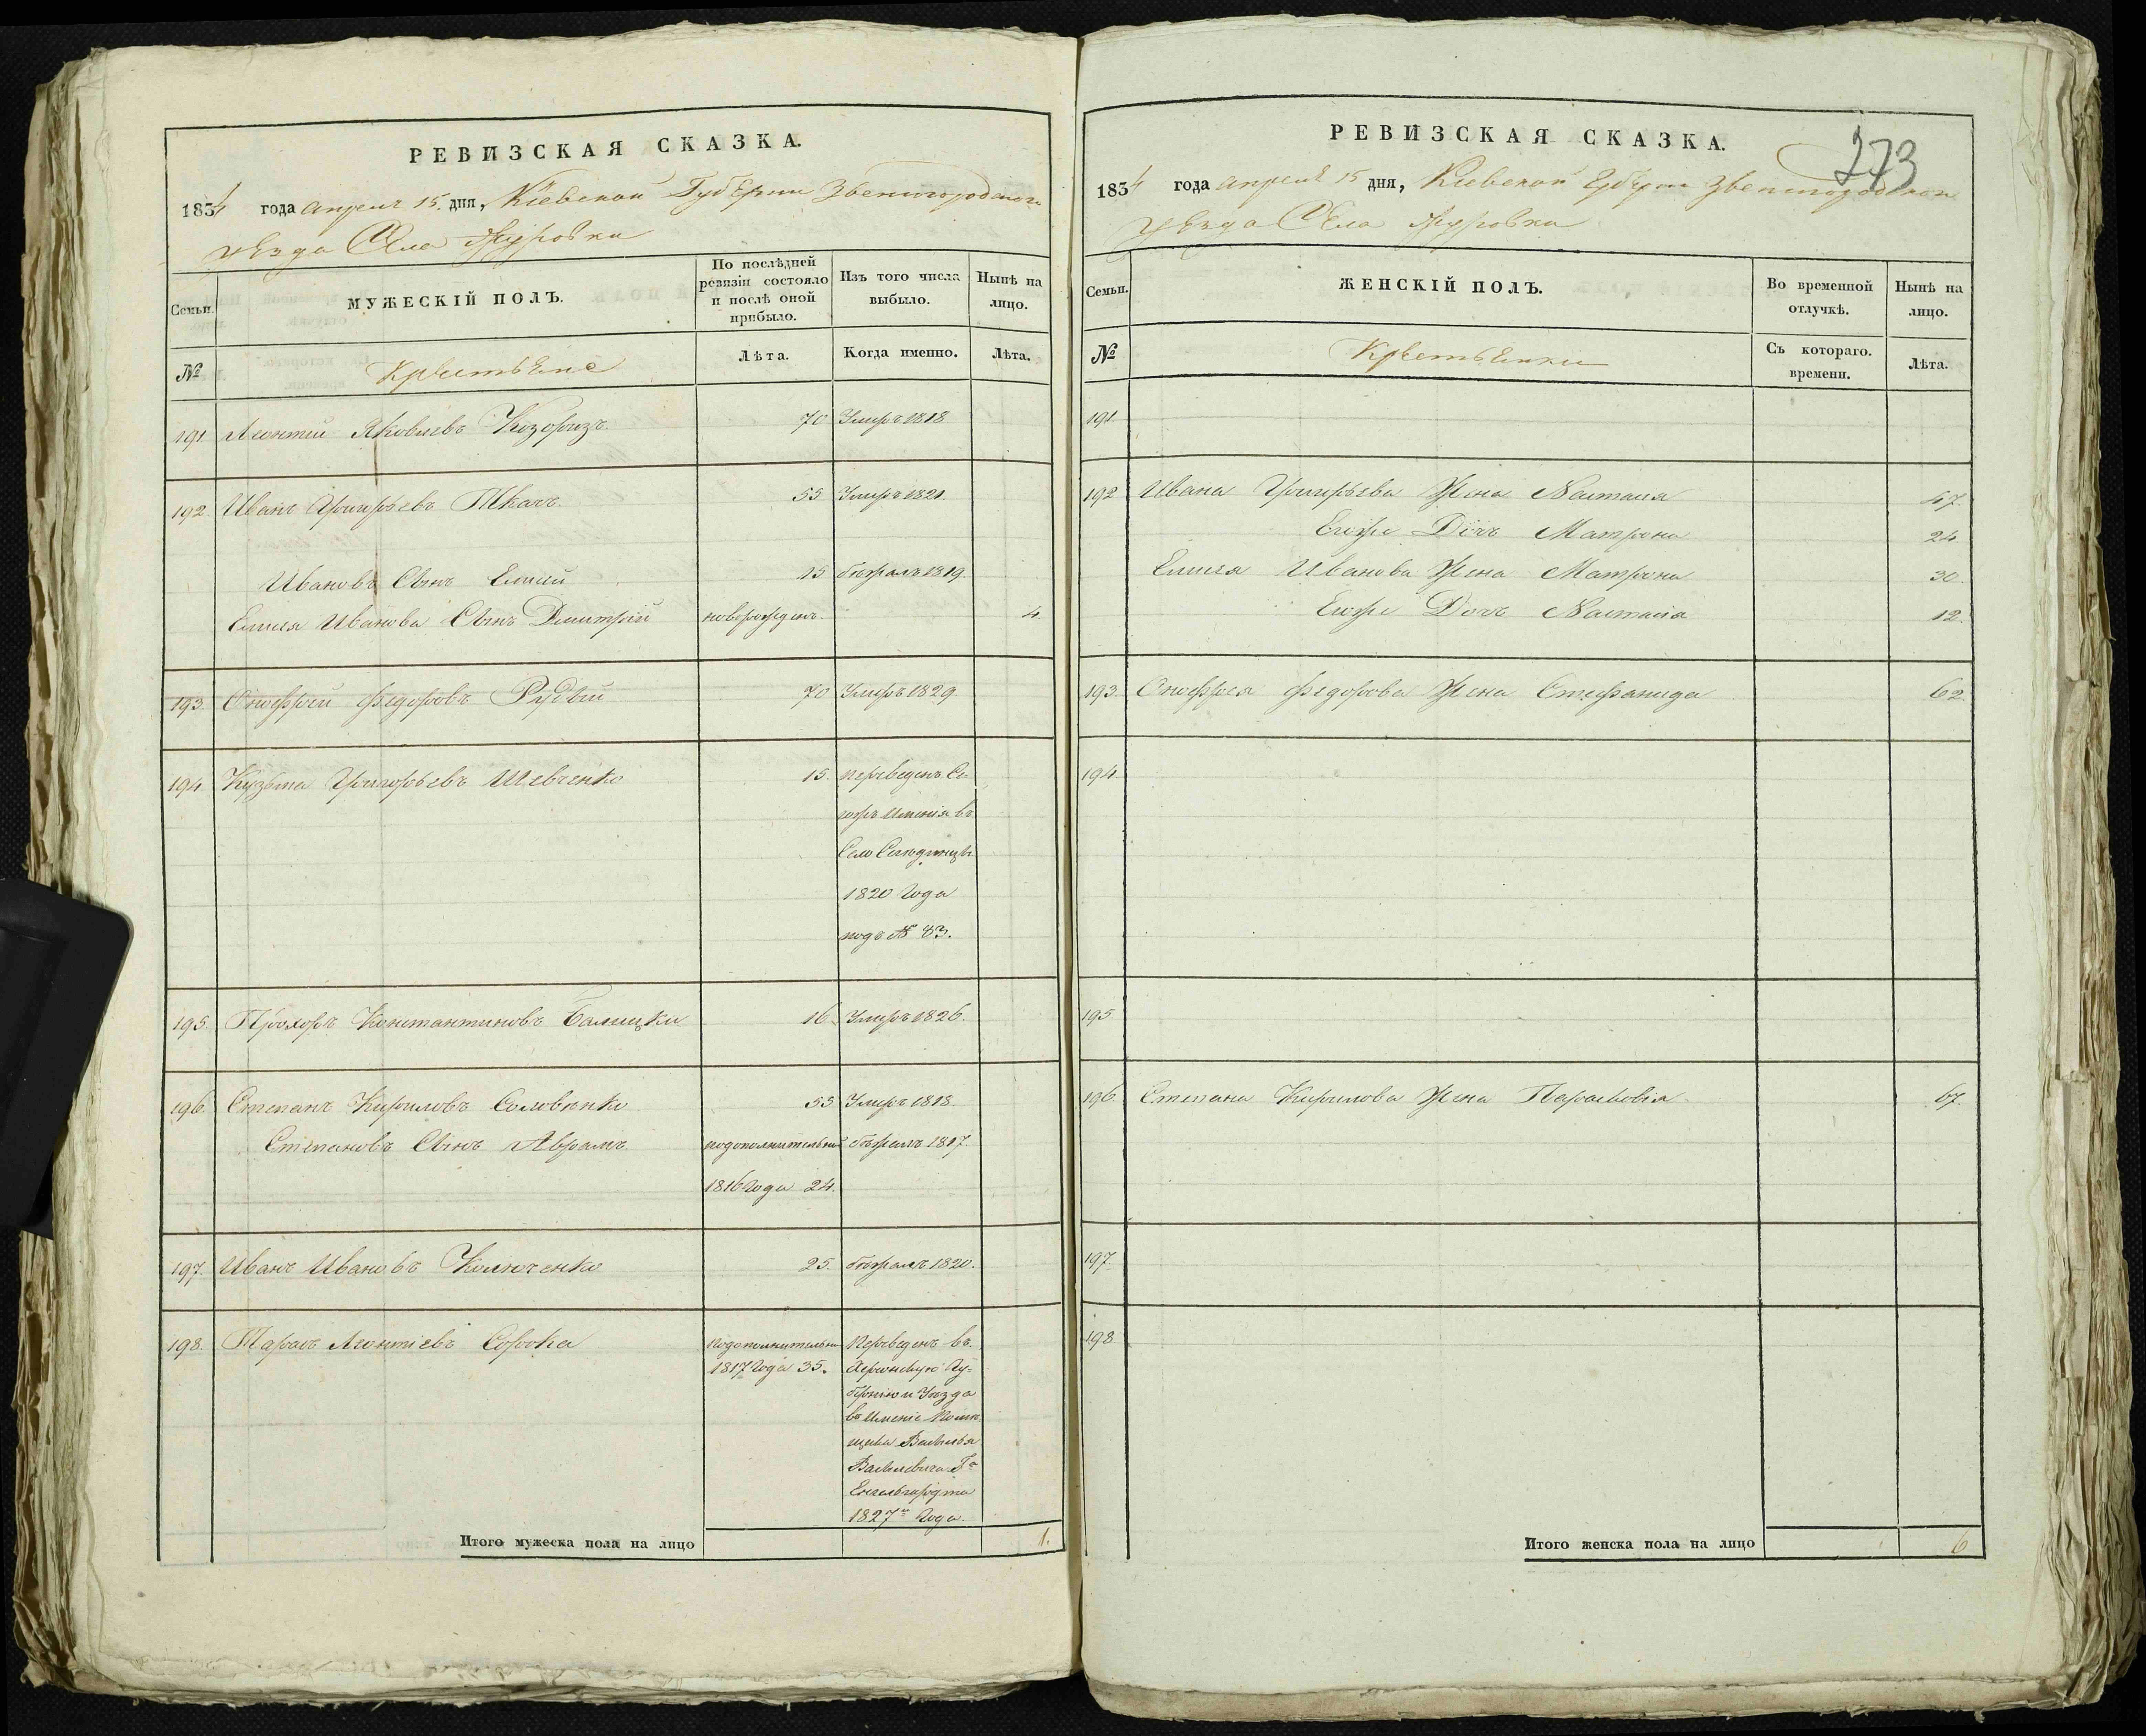 РЕВИЗСКАЯ СКАЗКА.
1834 года апреля 15. дня, Кіевской Губерніи Звенигородскаго
уезда Села Журовки
Семьи.
МУЖЕСКІЙ ПОЛЪ.
По послѣдней ревизіи состояло и послѣ оной прибыло.
Изъ того числа выбыло.
Нынѣ на лицо.
№
Крестьяне
Лѣта.
Когда именно.
Лѣта.
191 Леонтій Яковлевъ Козоризъ 70 Умеръ 1818
192. Иванъ Григорьевъ Ткачъ. 55 Умеръ 1821.
Ивановъ Сынъ Елисей 15 бѣжалъ 1819.
Елисея Иванова Сынъ Дмитрій новорожденъ. 4.
193. Онофрей Федоровъ Рудый 70 Умеръ 1829
194. Кузьма Григорьевъ Шевченко 15. переведенъ Се-
гожъ имения въ
Село
1820 Года
подъ № 83.
195. Прохоръ Константиновъ Балицки 16. Умеръ 1826.
196. Степанъ Кириловъ Соловѣнко 55 Умеръ 1818.
Степановъ Сынъ Аврамъ подополнительной бѣжалъ 1817.
1816 Года 24.
197. Иванъ Ивановъ Колюченко 25. бѣжалъ 1820.
198. Тарасъ Леонтіевъ Сорока подополнительной Переведенъ въ
1817 Года 35. Херсонскую Гу-
бѣрнію и Уѣзда
въ Имѣніе помѣ-
щика Василья
Васильевича Гª
Енгельгардта
1827ᵍᵒ Года.
Итого мужеска пола на лицо 1.
РЕВИЗСКАЯ СКАЗКА.
273
1834 года апреля 15 дня, Кіевской Губерніи Звенигородскаго
уезда Села Журовки
Семьи.
ЖЕНСКІЙ ПОЛЪ.
Во временной отлучкѣ.
Нынѣ на лицо.
№
Крестьянки
Съ котораго. времени.
Лѣта.
191.
192 Ивана Григорьева Жена Настасія 47.
Егоже Дочь Матрона 24.
Елисея Иванова Жена Матрона 30.
Егоже Дочь Настасія 12.
193. Онофрея Федорова Жена Стефанида 62.
194.
195
196. Степана Кирилова Жена Парасковія 67.
197.
198
Итого женска пола на лицо 6